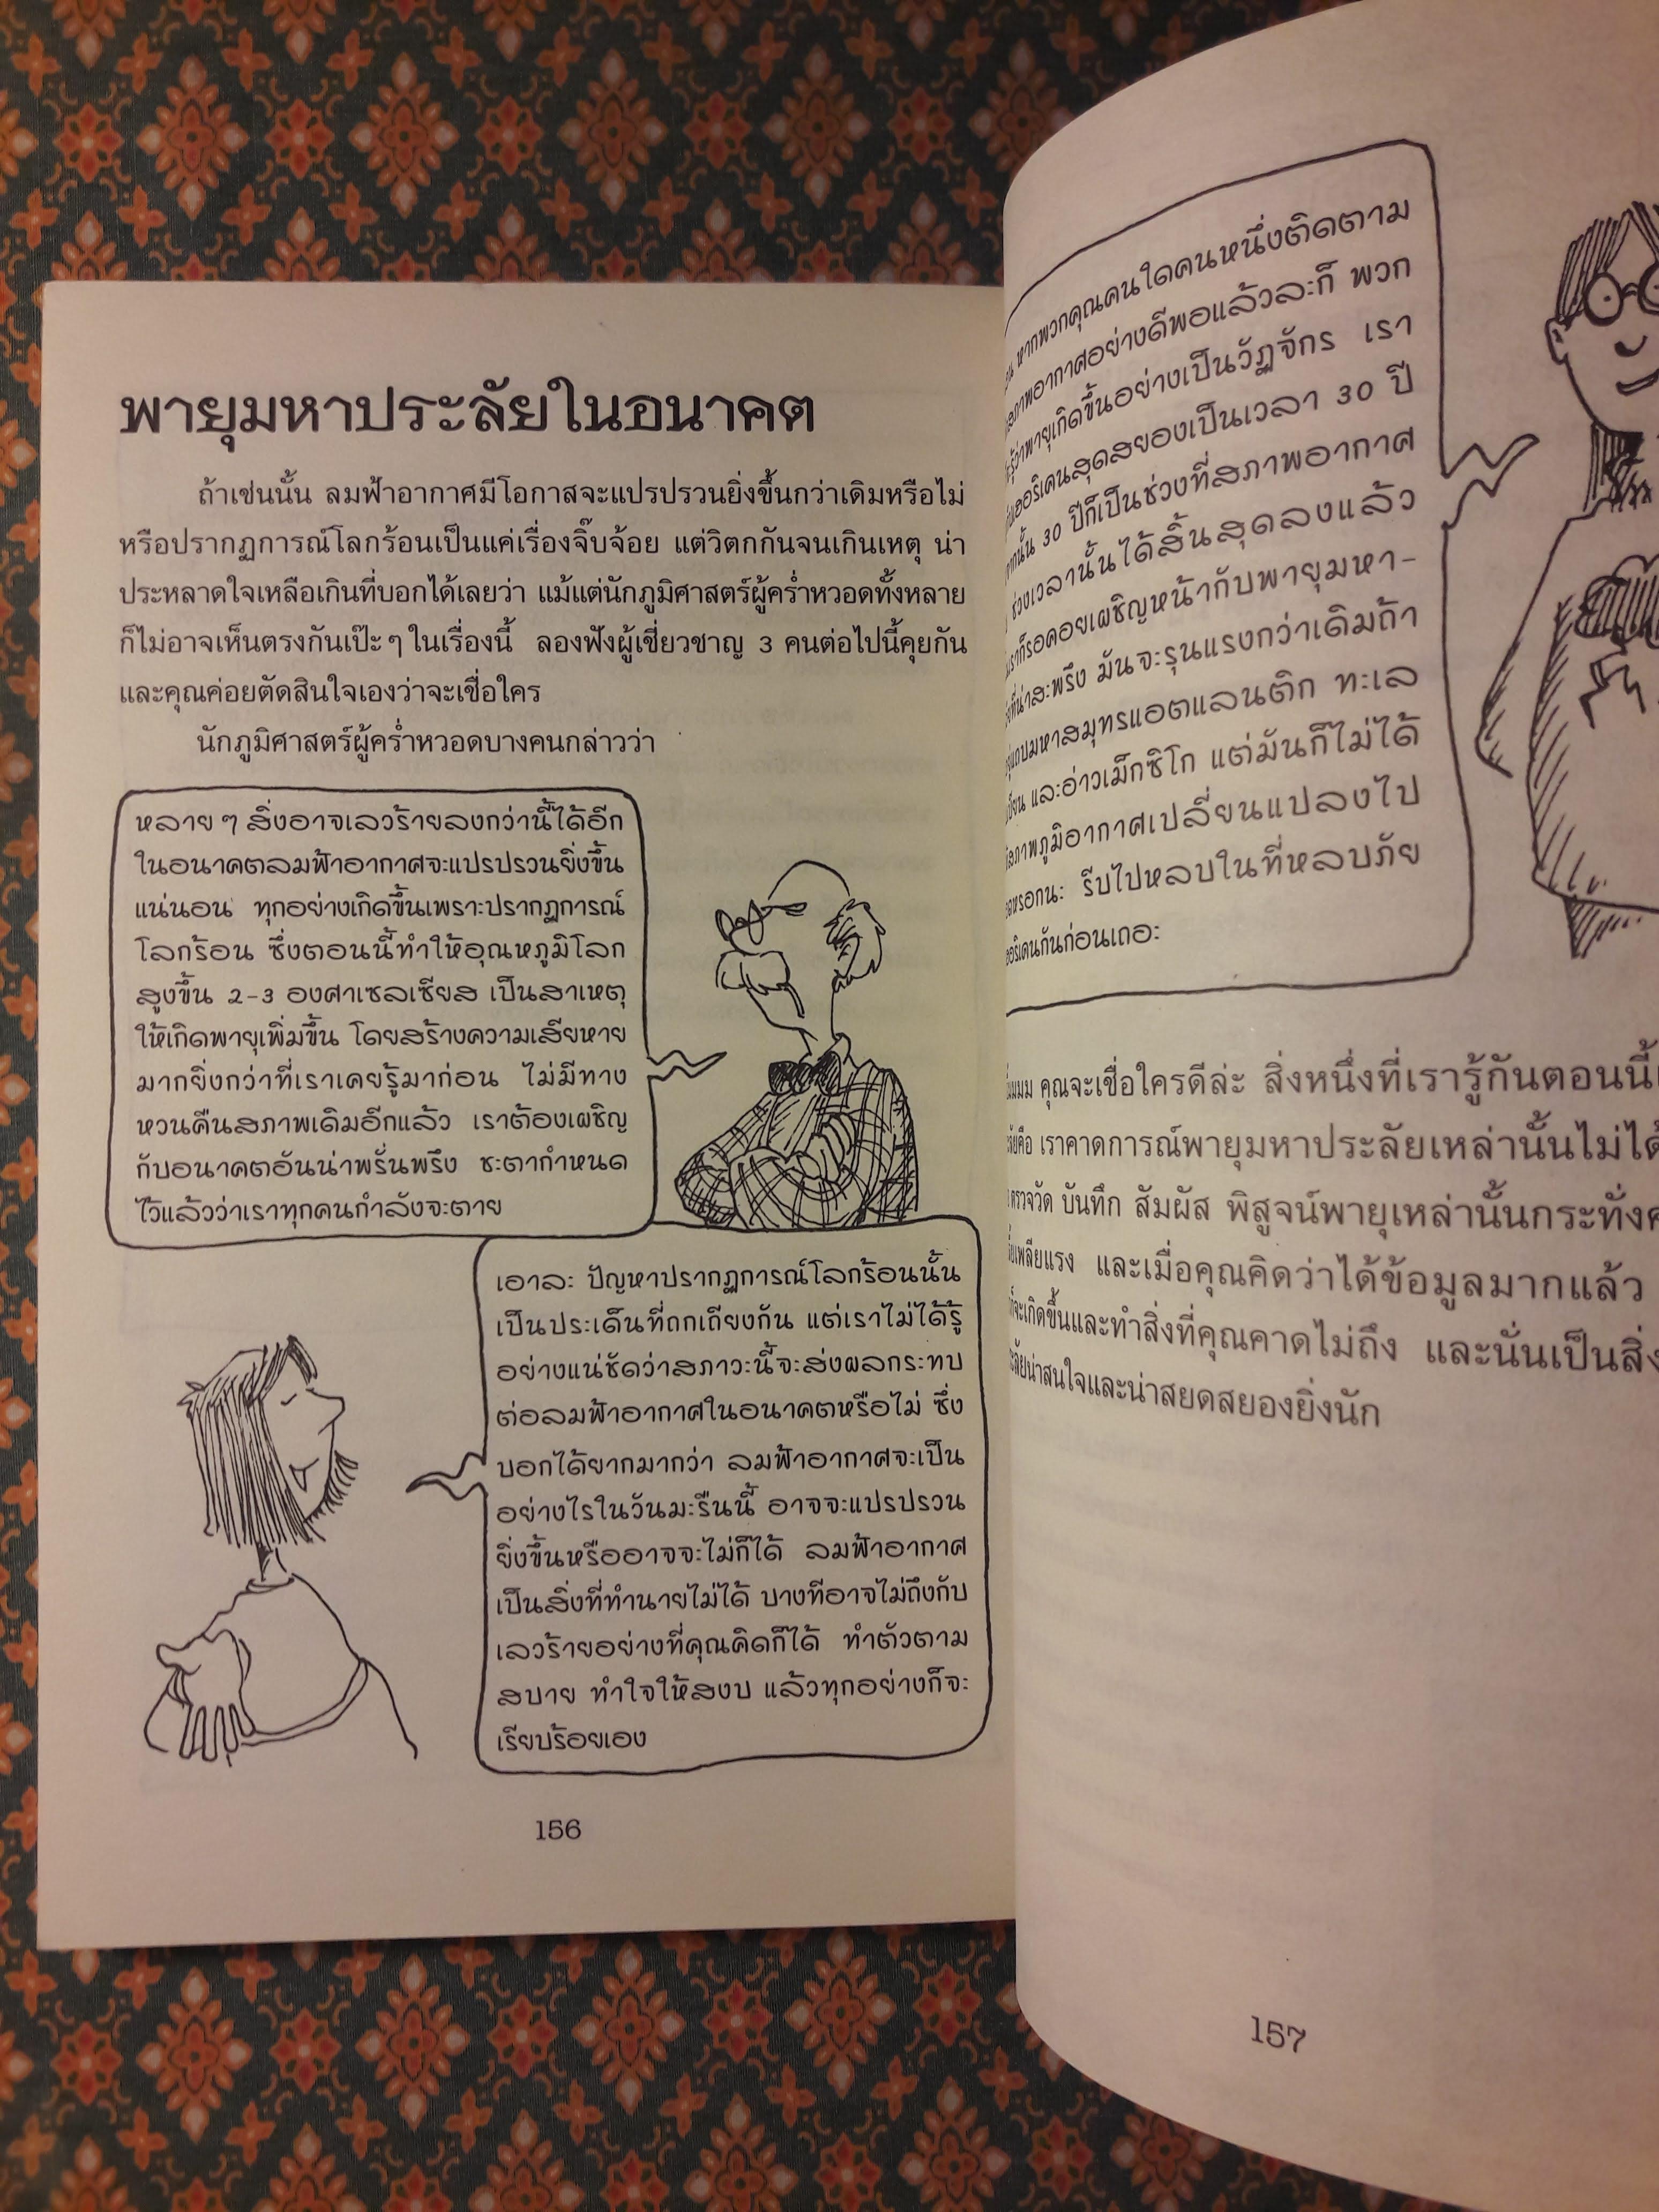 พายุมหาประลัยในอนาคต
ถ้าเช่นนั้น ลมฟ้าอากาศมีโอกาสจะแปรปรวนยิ่งขึ้นกว่าเดิมหรือไม่
หรือปรากฏการณ์โลกร้อนเป็นแค่เรื่องจิ๊บจ้อย แต่วิตกกันจนเกินเหตุ น่า
ประหลาดใจเหลือเกินที่บอกได้เลยว่า แม้แต่นักภูมิศาสตร์ผู้คร่ำหวอดทั้งหลาย
ก็ไม่อาจเห็นตรงกันเป๊ะๆ ในเรื่องนี้ ลองฟังผู้เชี่ยวชาญ 3 คนต่อไปนี้คุยกัน
และคุณค่อยตัดสินใจเองว่าจะเชื่อใคร
นักภูมิศาสตร์ผู้คร่ำหวอดบางคนกล่าวว่า
หลายๆ สิ่งอาจเลวร้ายลงกว่านี้ได้อีก
ในอนาคตลมฟ้าอากาศจะแปรปรวนยิ่งขึ้น
แน่นอน ทุกอย่างเกิดขึ้นเพราะปรากฏการณ์
โลกร้อน ซึ่งตอนนี้ทำให้อุณหภูมิโลก
สูงขึ้น 2-3 องศาเซลเซียส เป็นสาเหตุ
ให้เกิดพายุเพิ่มขึ้น โดยสร้างความเสียหาย
มากยิ่งกว่าที่เราเคยรู้มาก่อน ไม่มีทาง
หวนคืนสภาพเดิมอีกแล้ว เราต้องเผชิญ
กับอนาคตอันน่าพรั่นพรึง ชะตากำหนด
ไว้แล้วว่าเราทุกคนกำลังจะตาย
เอาละ ปัญหาปรากฏการณ์โลกร้อนนั้น
เป็นประเด็นที่ถกเถียงกัน แต่เราไม่ได้รู้
อย่างแน่ชัดว่าสภาวะนี้จะส่งผลกระทบ
ต่อลมฟ้าอากาศในอนาคตหรือไม่ ซึ่ง
บอกได้ยากมากว่า ลมฟ้าอากาศจะเป็น
อย่างไรในวันมะรืนนี้ อาจจะแปรปรวน
ยิ่งขึ้นหรืออาจจะไม่ก็ได้ ลมฟ้าอากาศ
เป็นสิ่งที่ทำนายไม่ได้ บางทีอาจไม่ถึงกับ
เลวร้ายอย่างที่คุณคิดก็ได้ ทำตัวตาม
สบาย ทำใจให้สงบ แล้วทุกอย่างก็จะ
เรียบร้อยเอง
156
หากพวกคุณคนใดคนหนึ่งติดตาม
สภาพอากาศอย่างดีพอแล้วละก็ พวก
รู้ว่าพายุเกิดขึ้นอย่างเป็นวัฏจักร เรา
เฮอริเคนสุดสยองเป็นเวลา 30 ปี
จากนั้น 30 ปีก็เป็นช่วงที่สภาพอากาศ
ช่วงเวลานั้นได้สิ้นสุดลงแล้ว
เราก็รอคอยเผชิญหน้ากับพายุมหา-
ที่น่าสะพรึง มันจะรุนแรงกว่าเดิมถ้า
แถบมหาสมุทรแอตแลนติก ทะเล
และอ่าวเม็กซิโก แต่มันก็ไม่ได้
สภาพภูมิอากาศเปลี่ยนแปลงไป
หรอกนะ รีบไปหลบในที่หลบภัย
เฮอริเคนกันก่อนเถอะ
คุณจะเชื่อใครดีล่ะ สิ่งหนึ่งที่เรารู้กันตอนนี้
คือ เราคาดการณ์พายุมหาประลัยเหล่านั้นไม่ได้
ตรวจวัด บันทึก สัมผัส พิสูจน์พายุเหล่านั้นกระทั่ง
เพลียแรง และเมื่อคุณคิดว่าได้ข้อมูลมากแล้ว
ก็จะเกิดขึ้นและทำสิ่งที่คุณคาดไม่ถึง และนั่นเป็นสิ่ง
น่าสนใจและน่าสยดสยองยิ่งนัก
157